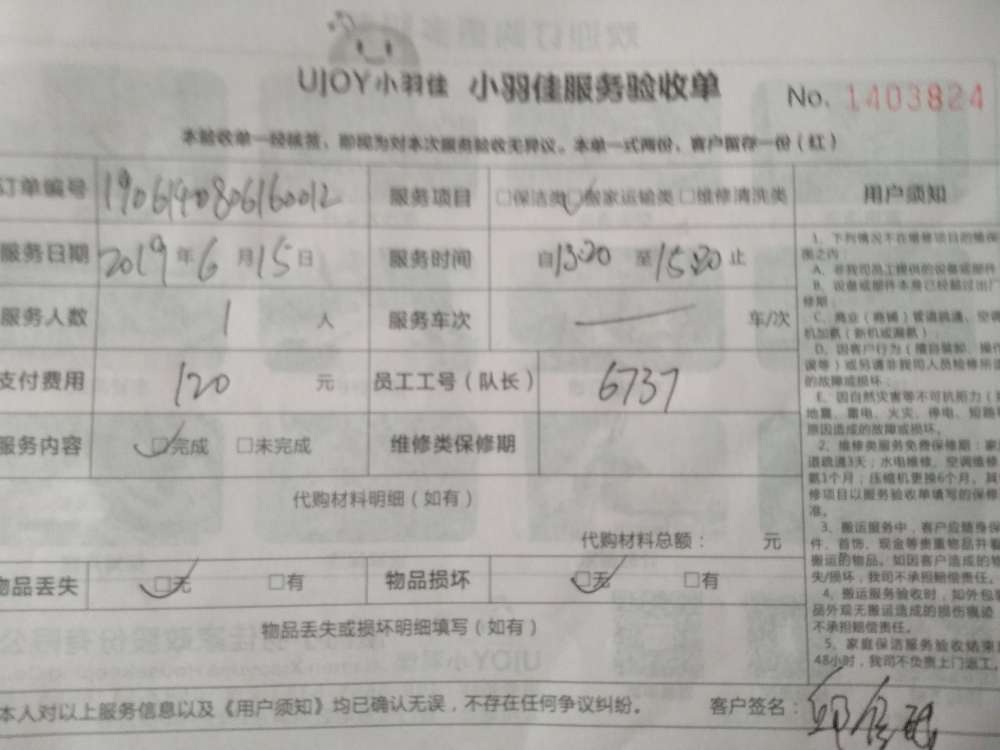 UJOY小羽佳 小羽佳服务验收单 No. 1403824
本验收单一经核签，即视为对本次服务验收无异议。本单一式两份，客户留存一份（红）
订单编号 1906140806160012 服务项目 □保洁类 □搬家运输类 □维修清洗类 用户须知
服务日期 2019年6月15日 服务时间 自13:30 至15:30止
服务人数 1 人 服务车次 — 车/次
支付费用 120 元 员工工号（队长） 6737
服务内容 □完成 □未完成 维修类保修期
代购材料明细（如有）
代购材料总额： 元
物品丢失 □无 □有 物品损坏 □无 □有
物品丢失或损坏明细填写（如有）
1、下列情况不在维修项目的维保
围之内：
A、非我司员工提供的设备或部件
B、设备或部件本身已经超过出厂
修期；
C、商业（商铺）管道疏通、空调
机加氨（新机或漏氨）
D、因客户行为（擅自装卸、操作
误等）或另请非我司人员检修所造
的故障或损坏；
E、因自然灾害等不可抗力（如
地震、雷电、火灾、停电、短路
原因造成的故障或损坏。
2、维修类服务免费保修期：家
道疏通3天；水电维修、空调维修
氨1个月；压缩机更换6个月。其
修项目以服务验收单填写的保修
准。
3、搬运服务中，客户应随身保
件、首饰、现金等贵重物品并看
搬运的物品。如因客户造成的物
失/损坏，我司不承担赔偿责任。
4、搬运服务验收时，如外包装
品外观无搬运造成的损伤痕迹
不承担赔偿责任。
5、家庭保洁服务验收结束
48小时，我司不负责上门返工。
本人对以上服务信息以及《用户须知》均已确认无误，不存在任何争议纠纷。 客户签名：